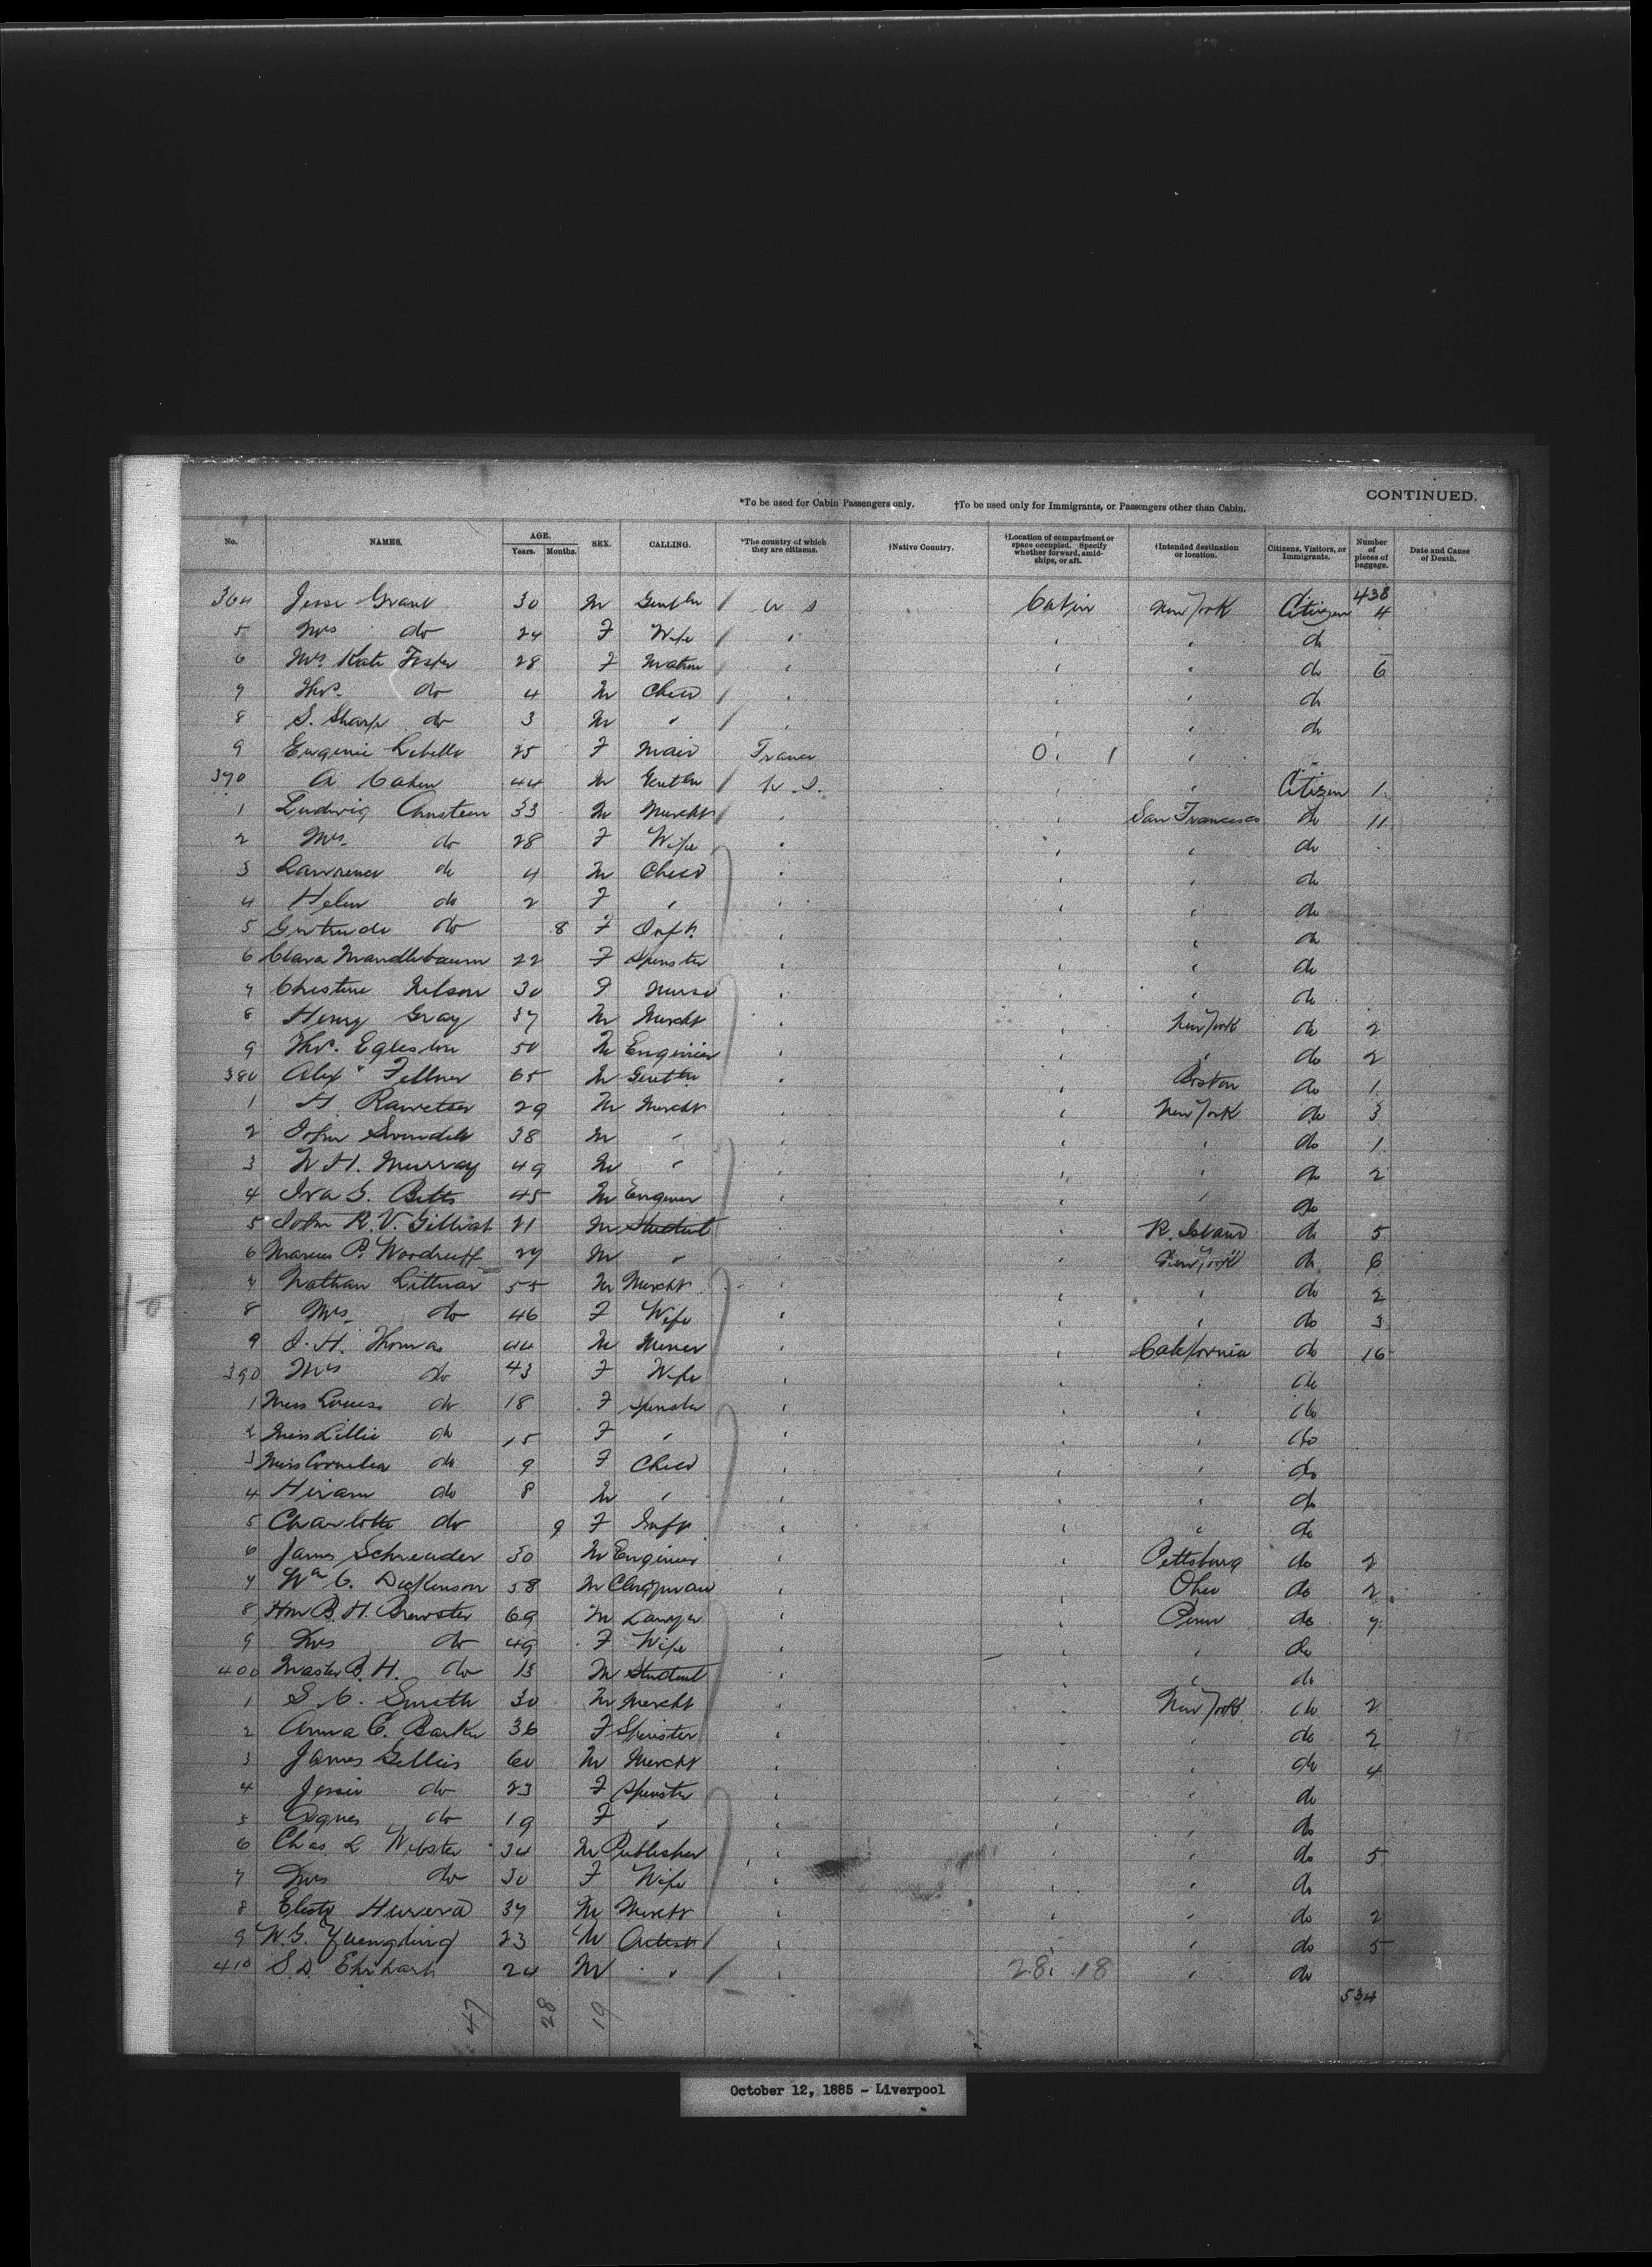 CONTINUED.
*To be used for Cabin Passengers only. †To be used only for Immigrants, or Passengers other than Cabin.
No. NAMES. AGE. Years. Months. SEX. CALLING. *The country of which they are citizens. †Native Country. †Location of compartment or space occupied. Specify whether forward, amid-ships, or aft. †Intended destination or location. Citizens, Visitors, or Immigrants. Number of pieces of baggage. Date and Cause of Death.
438
364 Jesse Grant 30 M Gentln U S Cabin New York Citizen 4
5 Mrs do 24 F Wife " " " do
6 Mrs Kate 28 F Matron " " " do 6
7 Thos. do 4 M Child " " " do
8 S. Sharp do 3 M " " " " do
9 Eugenie 25 F Maid France 0 1 "
370 A Cohen 44 M Gentln U.S. " " Citizen 1
1 Ludwig 33 M Mercht " " San Francisco do 11
2 Mrs. do 28 F Wife " " " do
3 Lawrence do 4 M Child " " " do
4 Helen do 2 F " " " " do
5 Gertrude do 8 F Inft. " " " do
6 Clara Mandlebaum 22 F Spinster " " " do
7 Christine Nelson 30 F Nurse " " " do
8 Henry Gray 37 M Mercht " " New York do 2
9 Thos. Egleston 50 M Engineer " " " do 2
380 Alex Fellner 65 M Gentln " " Boston do 1
1 H. 29 M Mercht " " New York do 3
2 John 38 M " " " " do 1
3 W H. Murray 49 M " " " " do 2
4 Ira G. Betts 45 M Engineer " " " do
5 John R. V. Gilliat 21 M Student " " R. Island do 5
6 Marcus P. Woodruff 27 M " " " New York do 6
7 Nathan Littauer 55 M Mercht " " " do 2
8 Mrs. do 46 F Wife " " " do 3
9 J. H. Thomas 44 M Miner " " California do 16
390 Mrs do 43 F Wife " " " do
1 Miss Louise do 18 F Spinster " " " do
2 Miss Lillie do 15 F " " " " do
3 Miss Cornelia do 9 F Child " " " do
4 Hiram do 8 M " " " " do
5 Charlotte do 9 F Inft " " " do
6 James Schreuder 30 M Engineer " " Pittsburg do 2
7 Wm C. Dickinson 58 M Clergyman " " Ohio do 2
8 Hon B. H. Brewster 69 M Lawyer " " Penn do 7
9 Mrs do 49 F Wife " " " do
400 Master B. H. do 13 M Student " " " do
1 S. C. Smith 30 M Mercht " " New York do 2
2 Anna C. Barker 36 F Spinster " " " do 2
3 James Gillies 60 M Mercht " " " do 4
4 Jessie do 23 F Spinster " " " do
5 Agnes do 19 F " " " " do
6 Chas L Webster 34 M Publisher " " " do 5
7 Mrs do 30 F Wife " " " do
8 Herrera 37 M Mercht " " " do 2
9 W. G. Yuengling 23 M Artist " " " do 5
410 S. D. Ehrhart 24 M " " 28 18 " do
534
47 28 19
October 12, 1885 - Liverpool